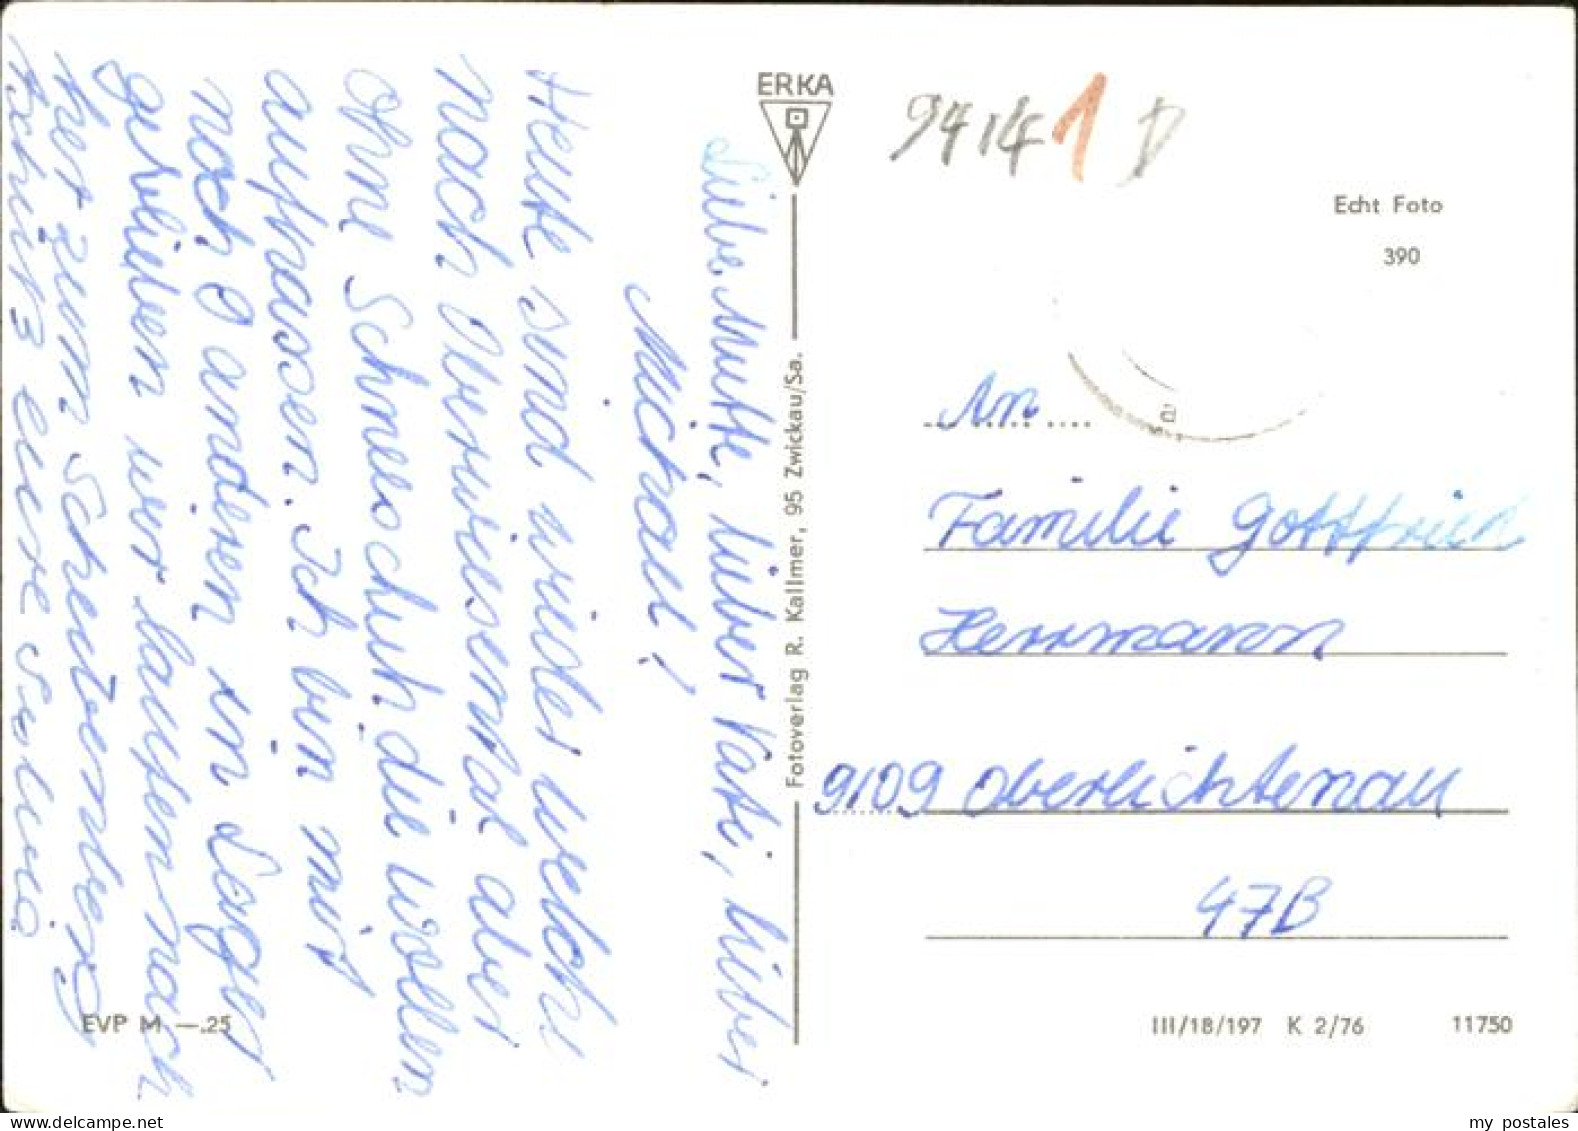 Liebe Mutte, lieber Vati, lieber
Michael!
Heute sind wieder welche
nach Oberwiesenthal aber
ohne Schneeschuh die wollen
aufpassen. Ich bin mit
noch 9 anderen in Lager
geblieben wir laufen nach
her zum Scheibenberg
Tschüß eure Sylvia
ERKA
Fotoverlag R. Kallmer, 95 Zwickau/Sa.
EVP M —.25
94141 D
Echt Foto
390
An
Familie Gottfried
Herrmann
9109 Oberlichtenau
47B
III/18/197 K 2/76 11750
www.delcampe.net
my_postales